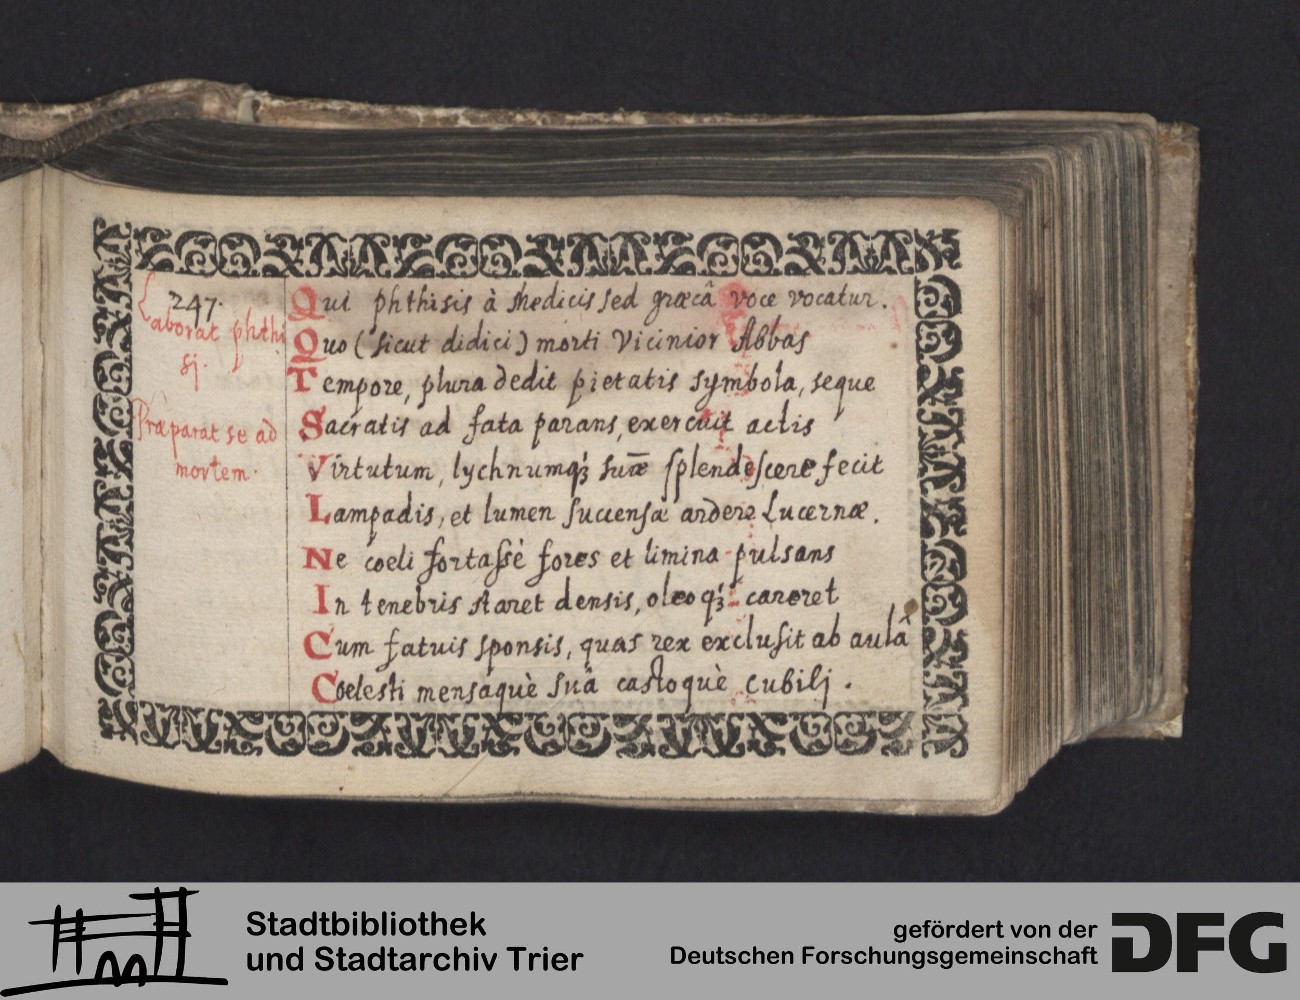 247.
Laborat phthi
sj.
Præparat se ad
mortem.
Qui phthisis à Medicis sed græcâ voce vocatur.
Quo (sicut didici) morti Vicinior Abbas
Tempore, plura dedit pietatis symbola, seque
Sacratis ad fata parans, exercuit actis
Virtutum, lychnumq́3 suæ splendescere fecit
Lampadis, et lumen succensæ ardere Lucernæ.
Ne coeli fortassè fores et limina pulsans
In tenebris staret densis, oleoq́3 careret
Cum fatuis sponsis, quas rex exclusit ab aulâ
Coelesti mensaquè suâ castoquè cubilj.
Stadtbibliothek
und Stadtarchiv Trier
gefördert von der
Deutschen Forschungsgemeinschaft
DFG